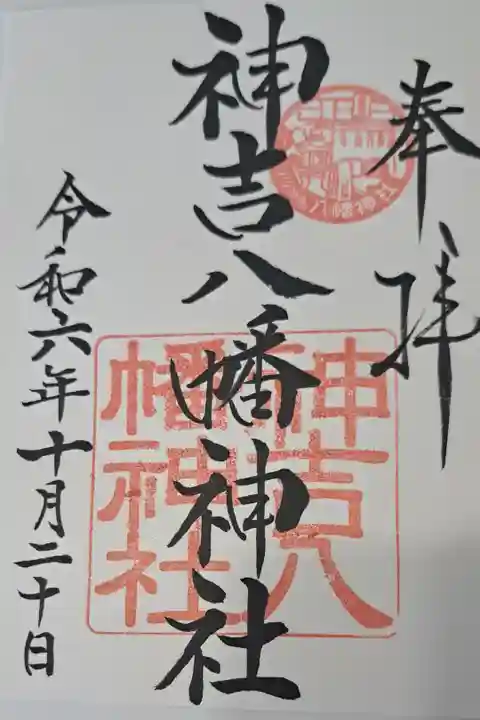 奉拝
神吉八幡神社
八幡神社
神吉八
幡神社
令和六年十月二十日